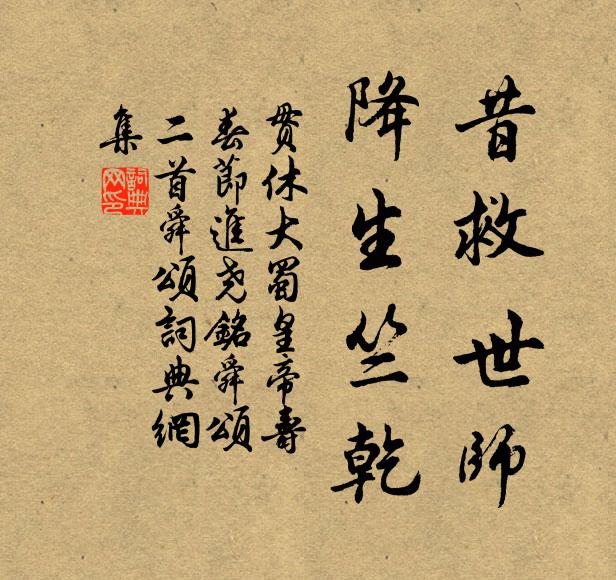 昔救世師
降生竺乾
貫休大蜀皇帝壽
春節進尧銘舜頌
二首舜頌詞典網
集
詞典
网印